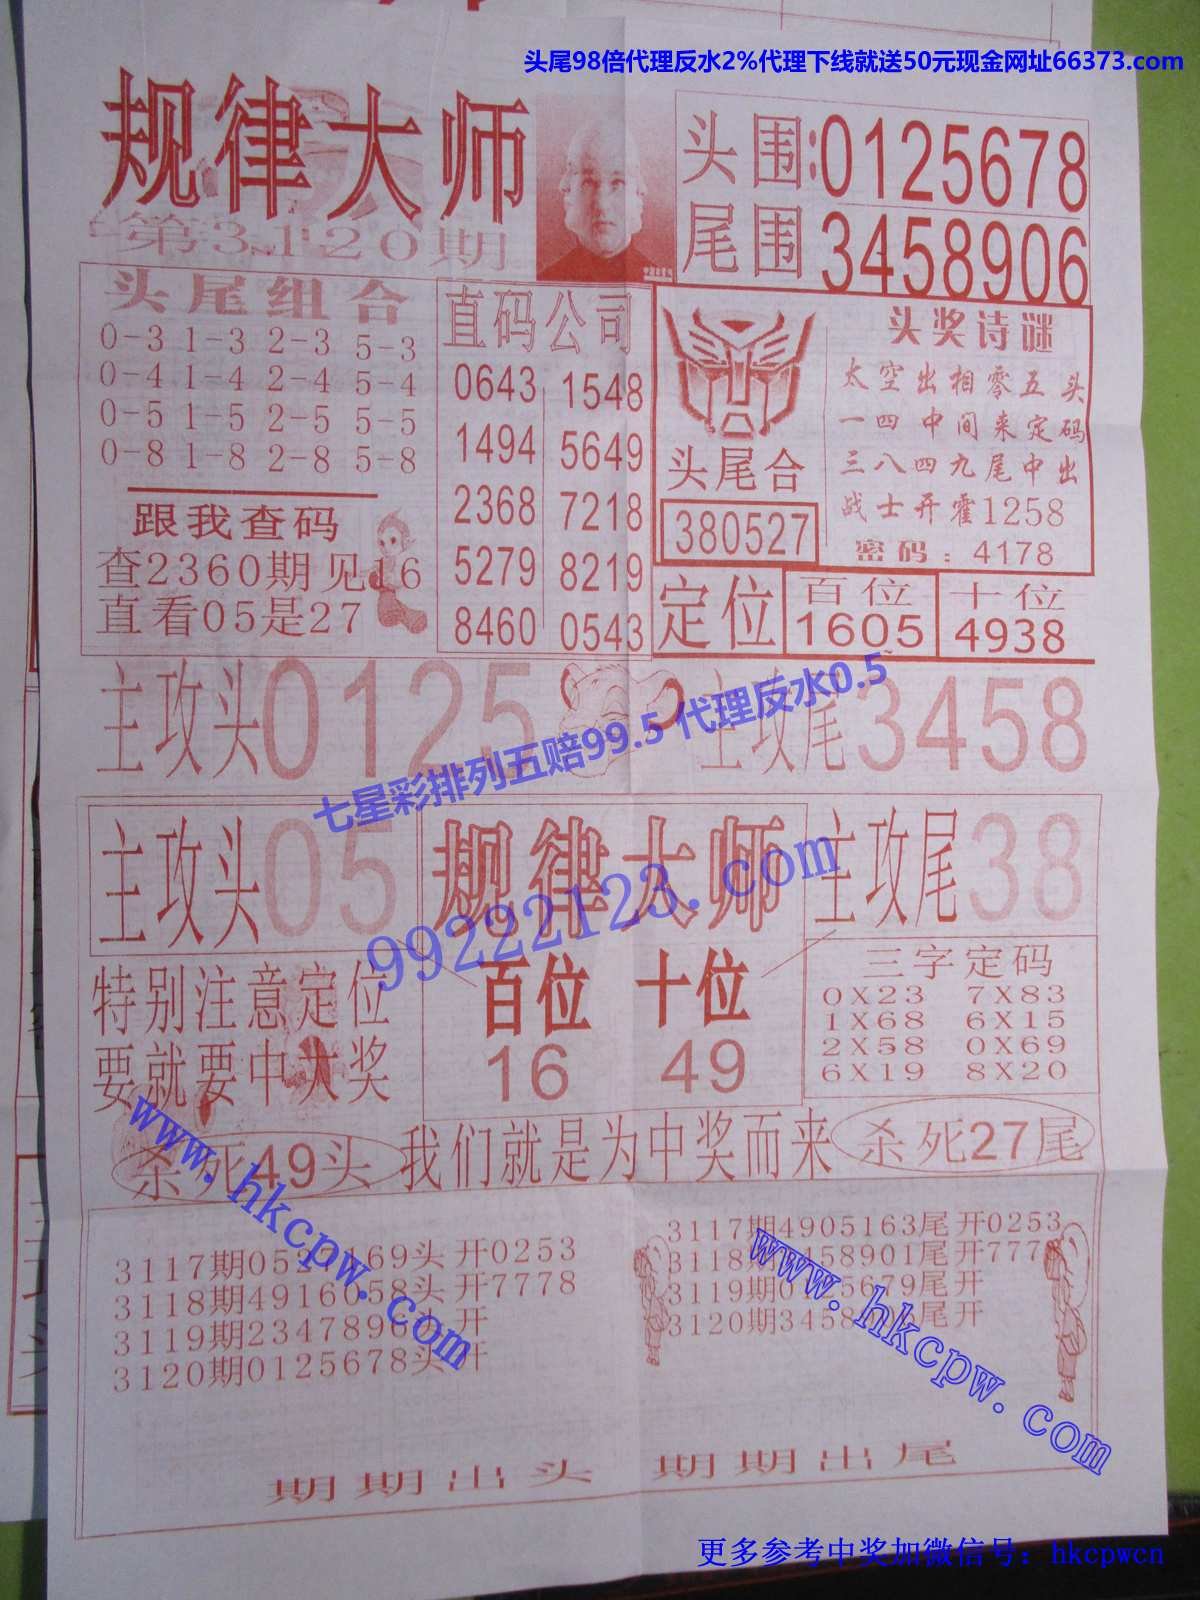 头尾98倍代理反水2%代理下线就送50元现金网址66373.com
规律大师
第3120期
头围:0125678
尾围 3458906
头尾组合
0-3 1-3 2-3 5-3
0-4 1-4 2-4 5-4
0-5 1-5 2-5 5-5
0-8 1-8 2-8 5-8
跟我查码
查2360期见16
直看05是27
直码公司
0643 1548
1494 5649
2368 7218
5279 8219
8460 0543
头尾合
380527
头奖诗谜
太空出相零五头
一四中间来定码
三八四九尾中出
战士开霍1258
密码:4178
定位
百位
1605
十位
4938
主攻头0125
主攻尾3458
七星彩排列五赔99.5 代理反水0.5
主攻头05
规律大师
主攻尾38
99222123.com
特别注意定位
要就要中大奖
百位 十位
16 49
三字定码
0X23 7X83
1X68 6X15
2X58 0X69
6X19 8X20
杀死49头
我们就是为中奖而来
杀死27尾
www.hkcpw.com
3117期052 169头 开0253
3118期4916058头 开7778
3119期2347896头 开
3120期0125678头 开
3117期4905163尾 开0253
3118期 458901尾 开7778
3119期0125679尾 开
3120期3458906尾 开
www.hkcpw.com
期期出头 期期出尾
更多参考中奖加微信号：hkcpwcn